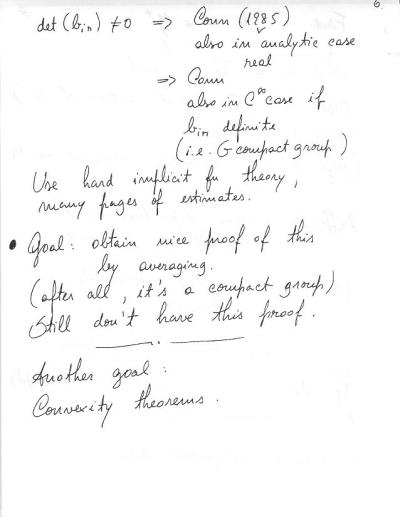 6
det (b_in) ≠ 0 => Conn (1985)
also in real analytic case
=> Conn
also in C^∞ case if
b_in definite
(i.e. G compact group)
Use hard implicit fn theory,
many pages of estimates.
• Goal: obtain nice proof of this
by averaging.
(after all, it's a compact group)
Still don't have this proof.
Another goal:
Convexity theorems.